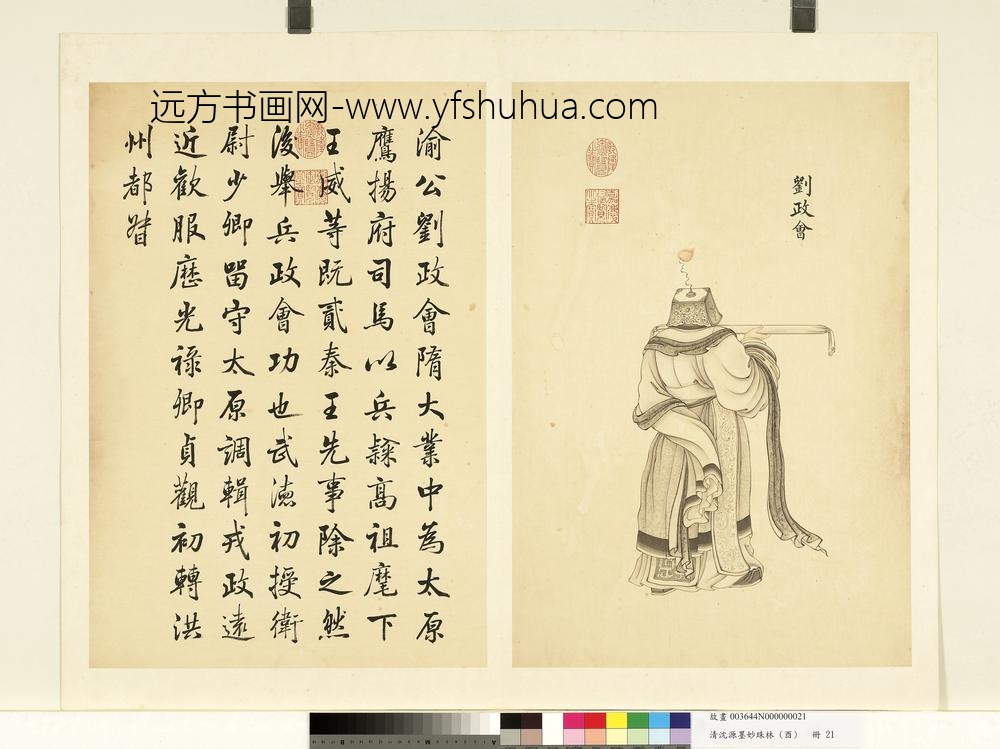 远方书画网-www.yfshuhua.com
劉政會
渝公劉政會隋大業中為太原
鷹揚府司馬以兵隸高祖麾下
王威等既貳秦王先事除之然
後舉兵政會功也武德初授衛
尉少卿留守太原調輯戎政遠
近歡服歷光祿卿貞觀初轉洪
州都督
故畫 003644N000000021
清沈源墨妙珠林(酉) 冊 21